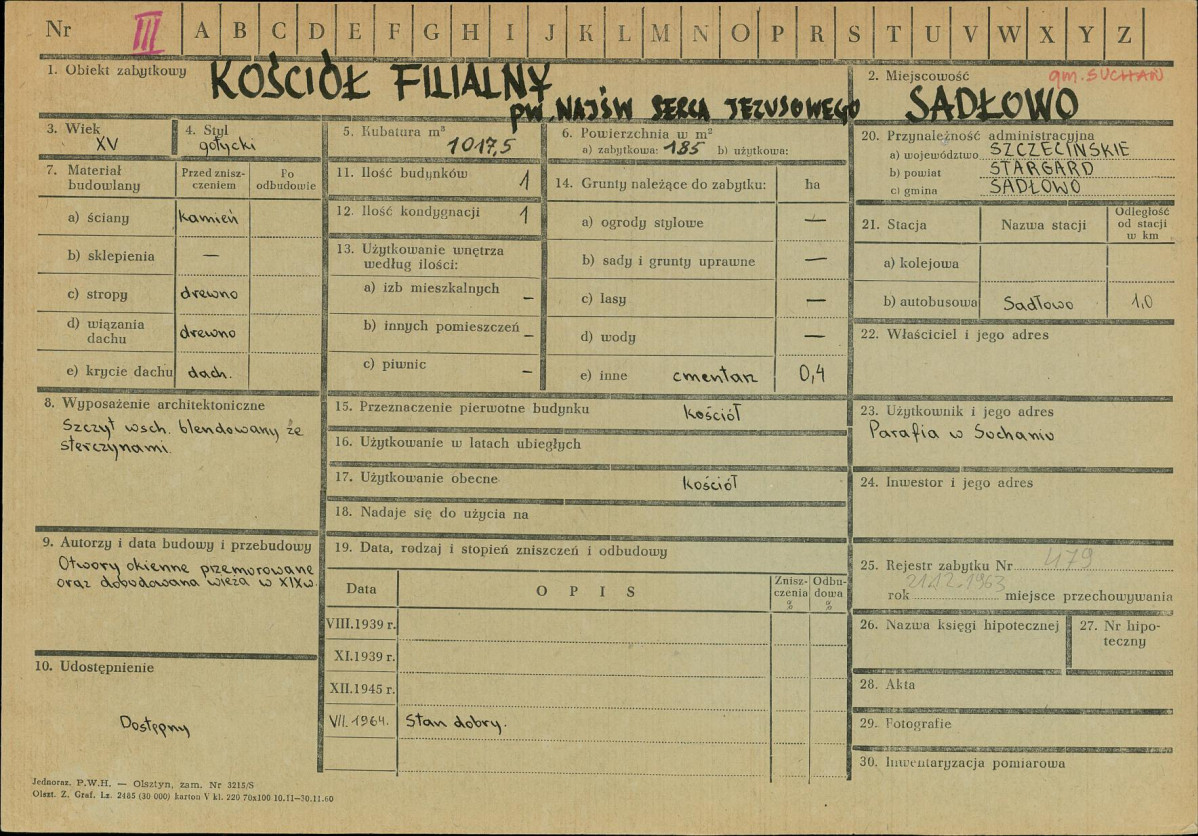 Nr III A B C D E F G H I J K L M N O P R S T U V W X Y Z
1. Obiekt zabytkowy KOŚCIÓŁ FILIALNY
PW. NAJŚW SERCA JEZUSOWEGO
2. Miejscowość gm. SUCHAŃ
SADŁOWO
3. Wiek
XV
4. Styl
gotycki
5. Kubatura m³
1017,5
6. Powierzchnia w m²
a) zabytkowa: 185 b) użytkowa:
7. Materiał budowlany
Przed zniszczeniem
Po odbudowie
a) ściany kamień
b) sklepienia —
c) stropy drewno
d) wiązania dachu drewno
e) krycie dachu dach.
8. Wyposażenie architektoniczne
Szczyt wsch. blendowany ze
sterczynami.
9. Autorzy i data budowy i przebudowy
Otwory okienne przemurowane
oraz dobudowana wieża w XIXw.
10. Udostępnienie
Dostępny
11. Ilość budynków 1
12. Ilość kondygnacji 1
13. Użytkowanie wnętrza
według ilości:
a) izb mieszkalnych —
b) innych pomieszczeń —
c) piwnic —
14. Grunty należące do zabytku: ha
a) ogrody stylowe —
b) sady i grunty uprawne —
c) lasy —
d) wody —
e) inne cmentarz 0,4
15. Przeznaczenie pierwotne budynku kościół
16. Użytkowanie w latach ubiegłych
17. Użytkowanie obecne kościół
18. Nadaje się do użycia na
19. Data, rodzaj i stopień zniszczeń i odbudowy
Data OPIS Zniszczenia % Odbudowa %
VIII.1939 r.
XI.1939 r.
XII.1945 r.
VII.1964. Stan dobry.
20. Przynależność administracyjna
a) województwo SZCZECIŃSKIE
b) powiat STARGARD
c) gmina SADŁOWO
21. Stacja Nazwa stacji Odległość od stacji w km
a) kolejowa
b) autobusowa Sadłowo 1,0
22. Właściciel i jego adres
23. Użytkownik i jego adres
Parafia w Suchaniu
24. Inwestor i jego adres
25. Rejestr zabytku Nr 479
rok 21.12.1963 miejsce przechowywania
26. Nazwa księgi hipotecznej
27. Nr hipoteczny
28. Akta
29. Fotografie
30. Inwentaryzacja pomiarowa
Jednoraz. P.W.H. — Olsztyn, zam. Nr 3215/S
Olszt. Z. Graf. Lz. 2485 (30 000) karton V kl. 220 70x100 10.11—30.11.60